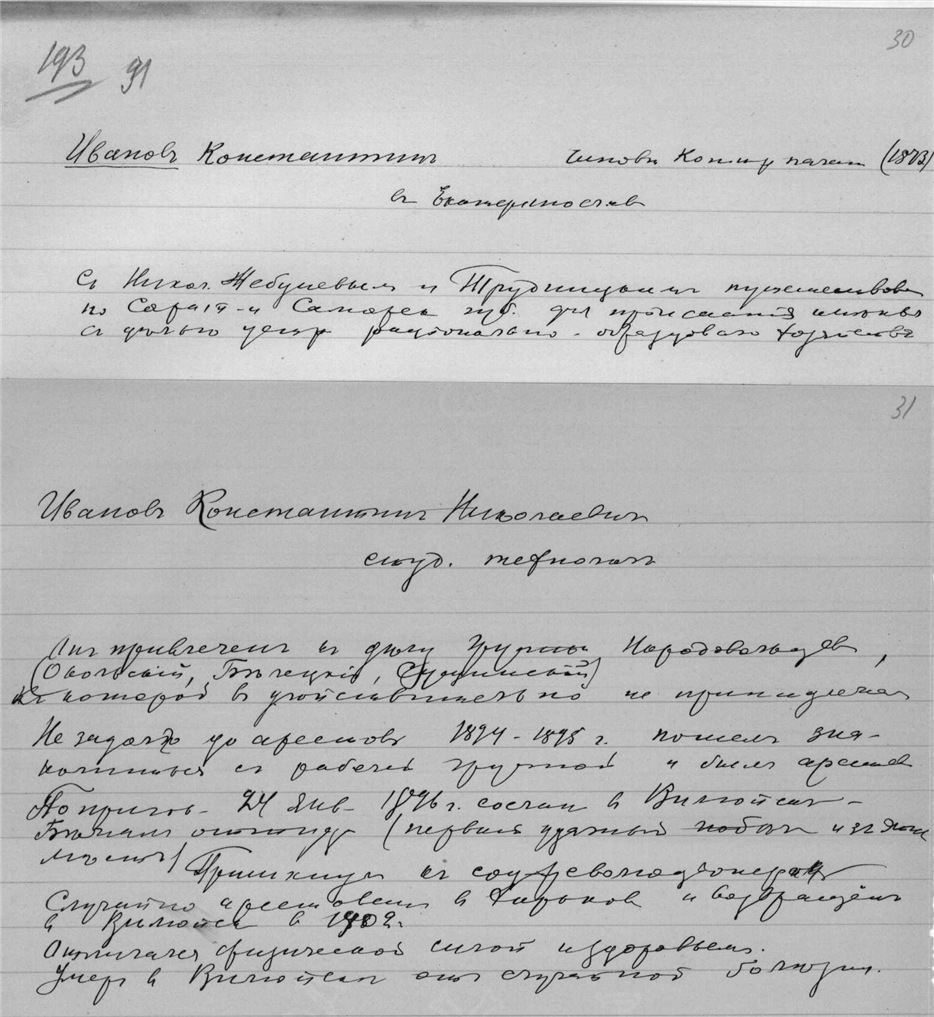 30
193 91
Ивановъ Константинъ чиновн Контр палат (1873)
въ Екатеринослав
Съ Никол. Жебуневымъ и Трудницкимъ путешествовал
по Сарат и Самарск губ. для приисканія имѣнья
съ цѣлью устр раціонально-образцоваго хозяйства
31
Ивановъ Константинъ Николаевичъ
студ. технологъ
Былъ привлеченъ къ дѣлу группы Народовольцевъ,
(Окольскій, Бѣлецкій,
къ которой в дѣйствительно не принадлежалъ
Незадолго до арестовъ 1894-1895 г. пошелъ зна-
комиться съ рабочей группой и былъ арестов
По пригов- 24 Янв- 1896 г. сослан в Вилюйскъ-
Бѣжалъ оттуда (первый удачный побѣгъ изъ этих
мѣстъ) Примкнулъ къ соц-революціонерамъ
Случайно арестованъ в Харьков и возвращенъ
в Вилюйск в 1902г.
Отличался физической силой и здоровьемъ.
Умер в Вилюйскѣ отъ случайной болѣзни.